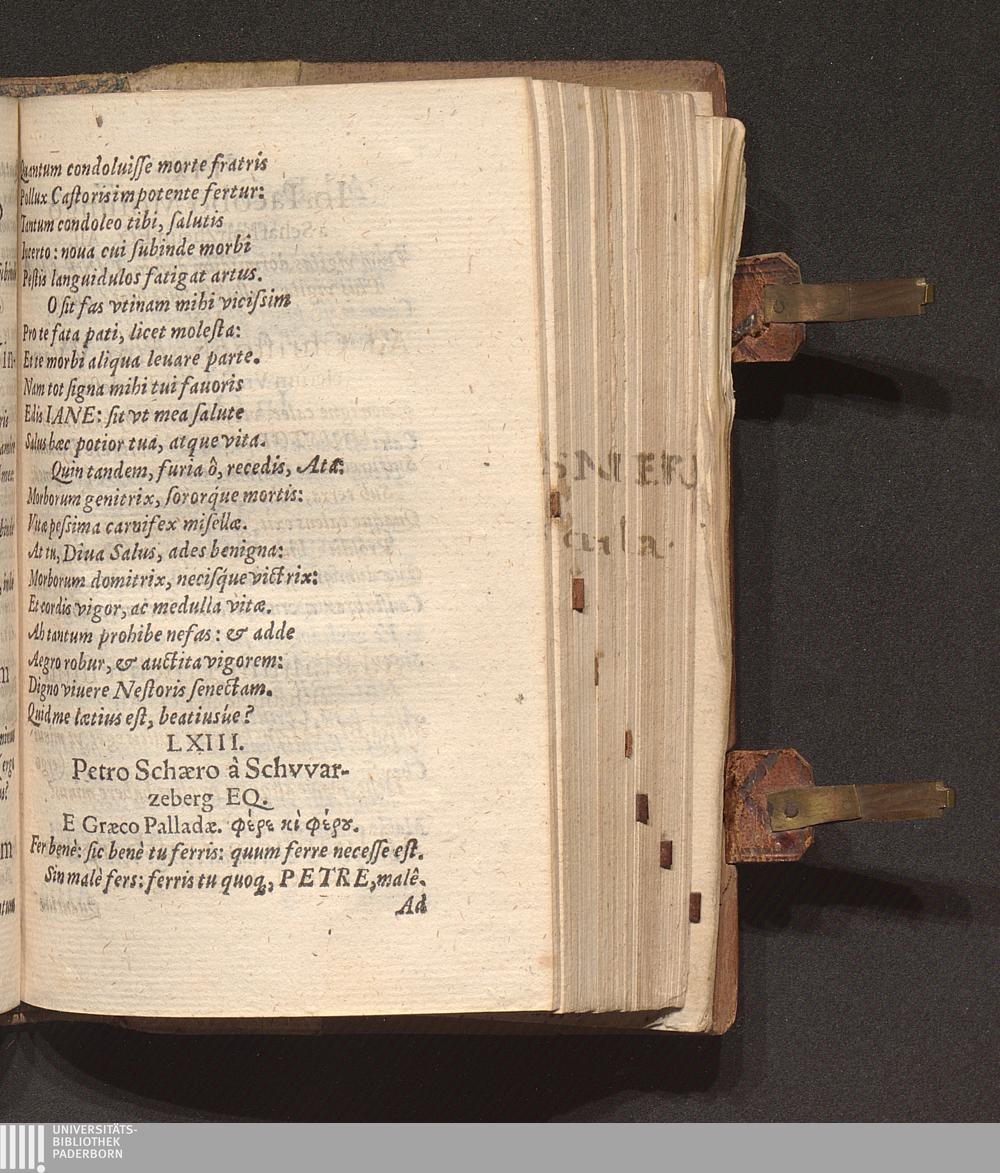 Quantum condoluiſſe morte fratris
Pollux Caſtoris impotente fertur:
Tantum condoleo tibi, ſalutis
Incerto: noua cui ſubinde morbi
Peſtis languidulos fatigat artus.
O ſit fas vtinam mihi viciſsim
Pro te fata pati, licet moleſta:
Et te morbi aliqua leuare parte.
Nam tot ſigna mihi tui fauoris
Edis IANE: ſit vt mea ſalute
Salus hæc potior tua, atque vita.
Quin tandem, furia ô, recedis, Ata:
Morborum genitrix, ſororq́ue mortis:
Vitæ peſsima carnifex miſellæ.
At tu, Diua Salus, ades benigna:
Morborum domitrix, neciſq́ue victrix:
Et cordis vigor, ac medulla vitæ.
Ah tantum prohibe nefas: & adde
Aegro robur, & auctita vigorem:
Digno viuere Neſtoris ſenectam.
Quid me lætius eſt, beatiusúe?
LXIII.
Petro Schæro â Schvvar-
zeberg EQ.
E Græco Palladæ. φέρε κὶ φέρου.
Fer benè: ſic benè tu ferris: quum ferre neceſſe eſt.
Sin malè fers: ferris tu quoq, PETRE, malê.
Ad
UNIVERSITÄTS-
BIBLIOTHEK
PADERBORN